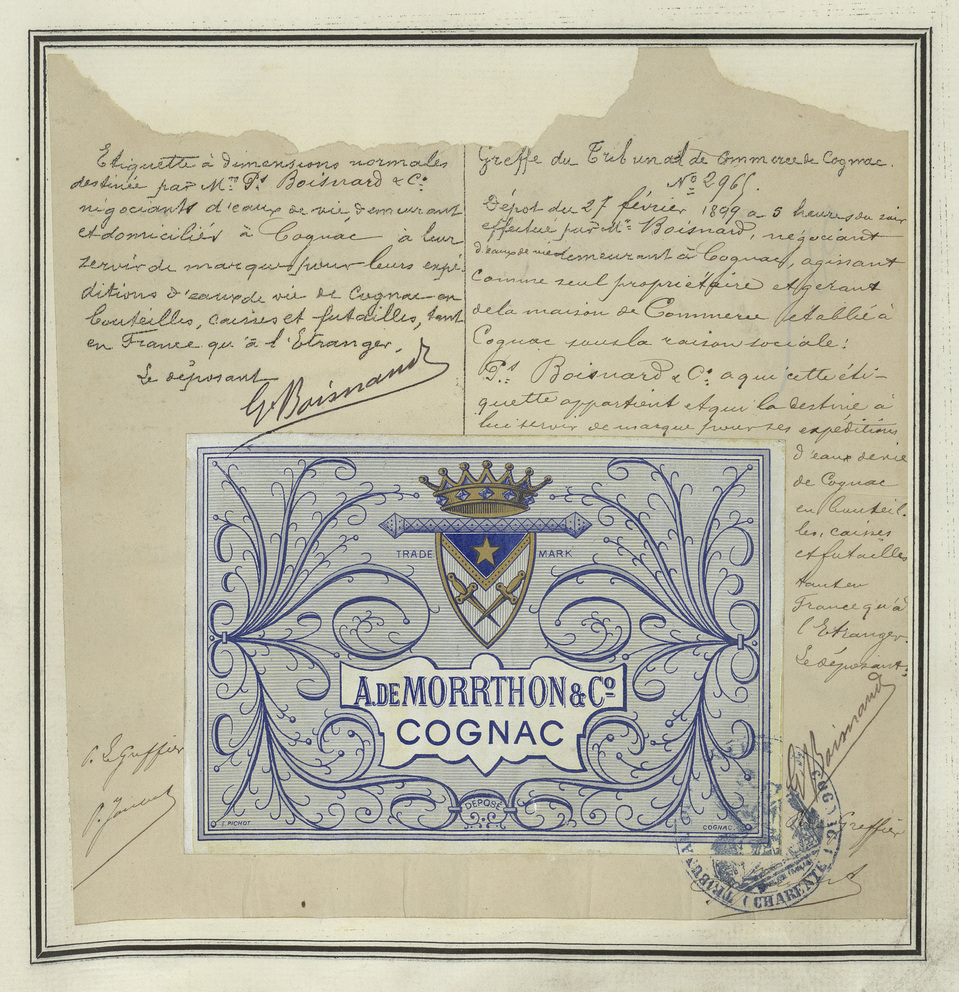 Etiquette à dimensions normales
destinée par Mrs Ps Boisnard & Cie
négociants d'eaux de vie, demeurant
et domiciliés à Cognac à leur
servir de marque pour leurs expé-
ditions d'eaux de vie de Cognac en
bouteilles, caisses et futailles, tant
en France qu'à l'Etranger
Le déposant
G. Boisnard
Greffe du Tribunal de Commerce de Cognac.
No 2965.
Dépôt du 27 février 1899 a 5 heures du soir
effectué par Mr Boisnard, négociant
d'eaux de vie demeurant à Cognac, agissant
comme seul propriétaire et gérant
de la maison de Commerce établie à
Cognac sous la raison sociale:
Ps Boisnard & Cie a qui cette éti-
quette appartient et qui la destine à
lui servir de marque pour ses expéditions
d'eaux de vie
de Cognac
en bouteil-
les, caisses
et futailles
tant en
France qu'à
l'Etranger.
Le déposant:
G. Boisnard
TRADE MARK
A. DE MORRTHON & Co
COGNAC
DÉPOSÉ
PICHOT
COGNAC
P. Le Greffier
Greffier
TRIBUNAL
(CHARENTE)